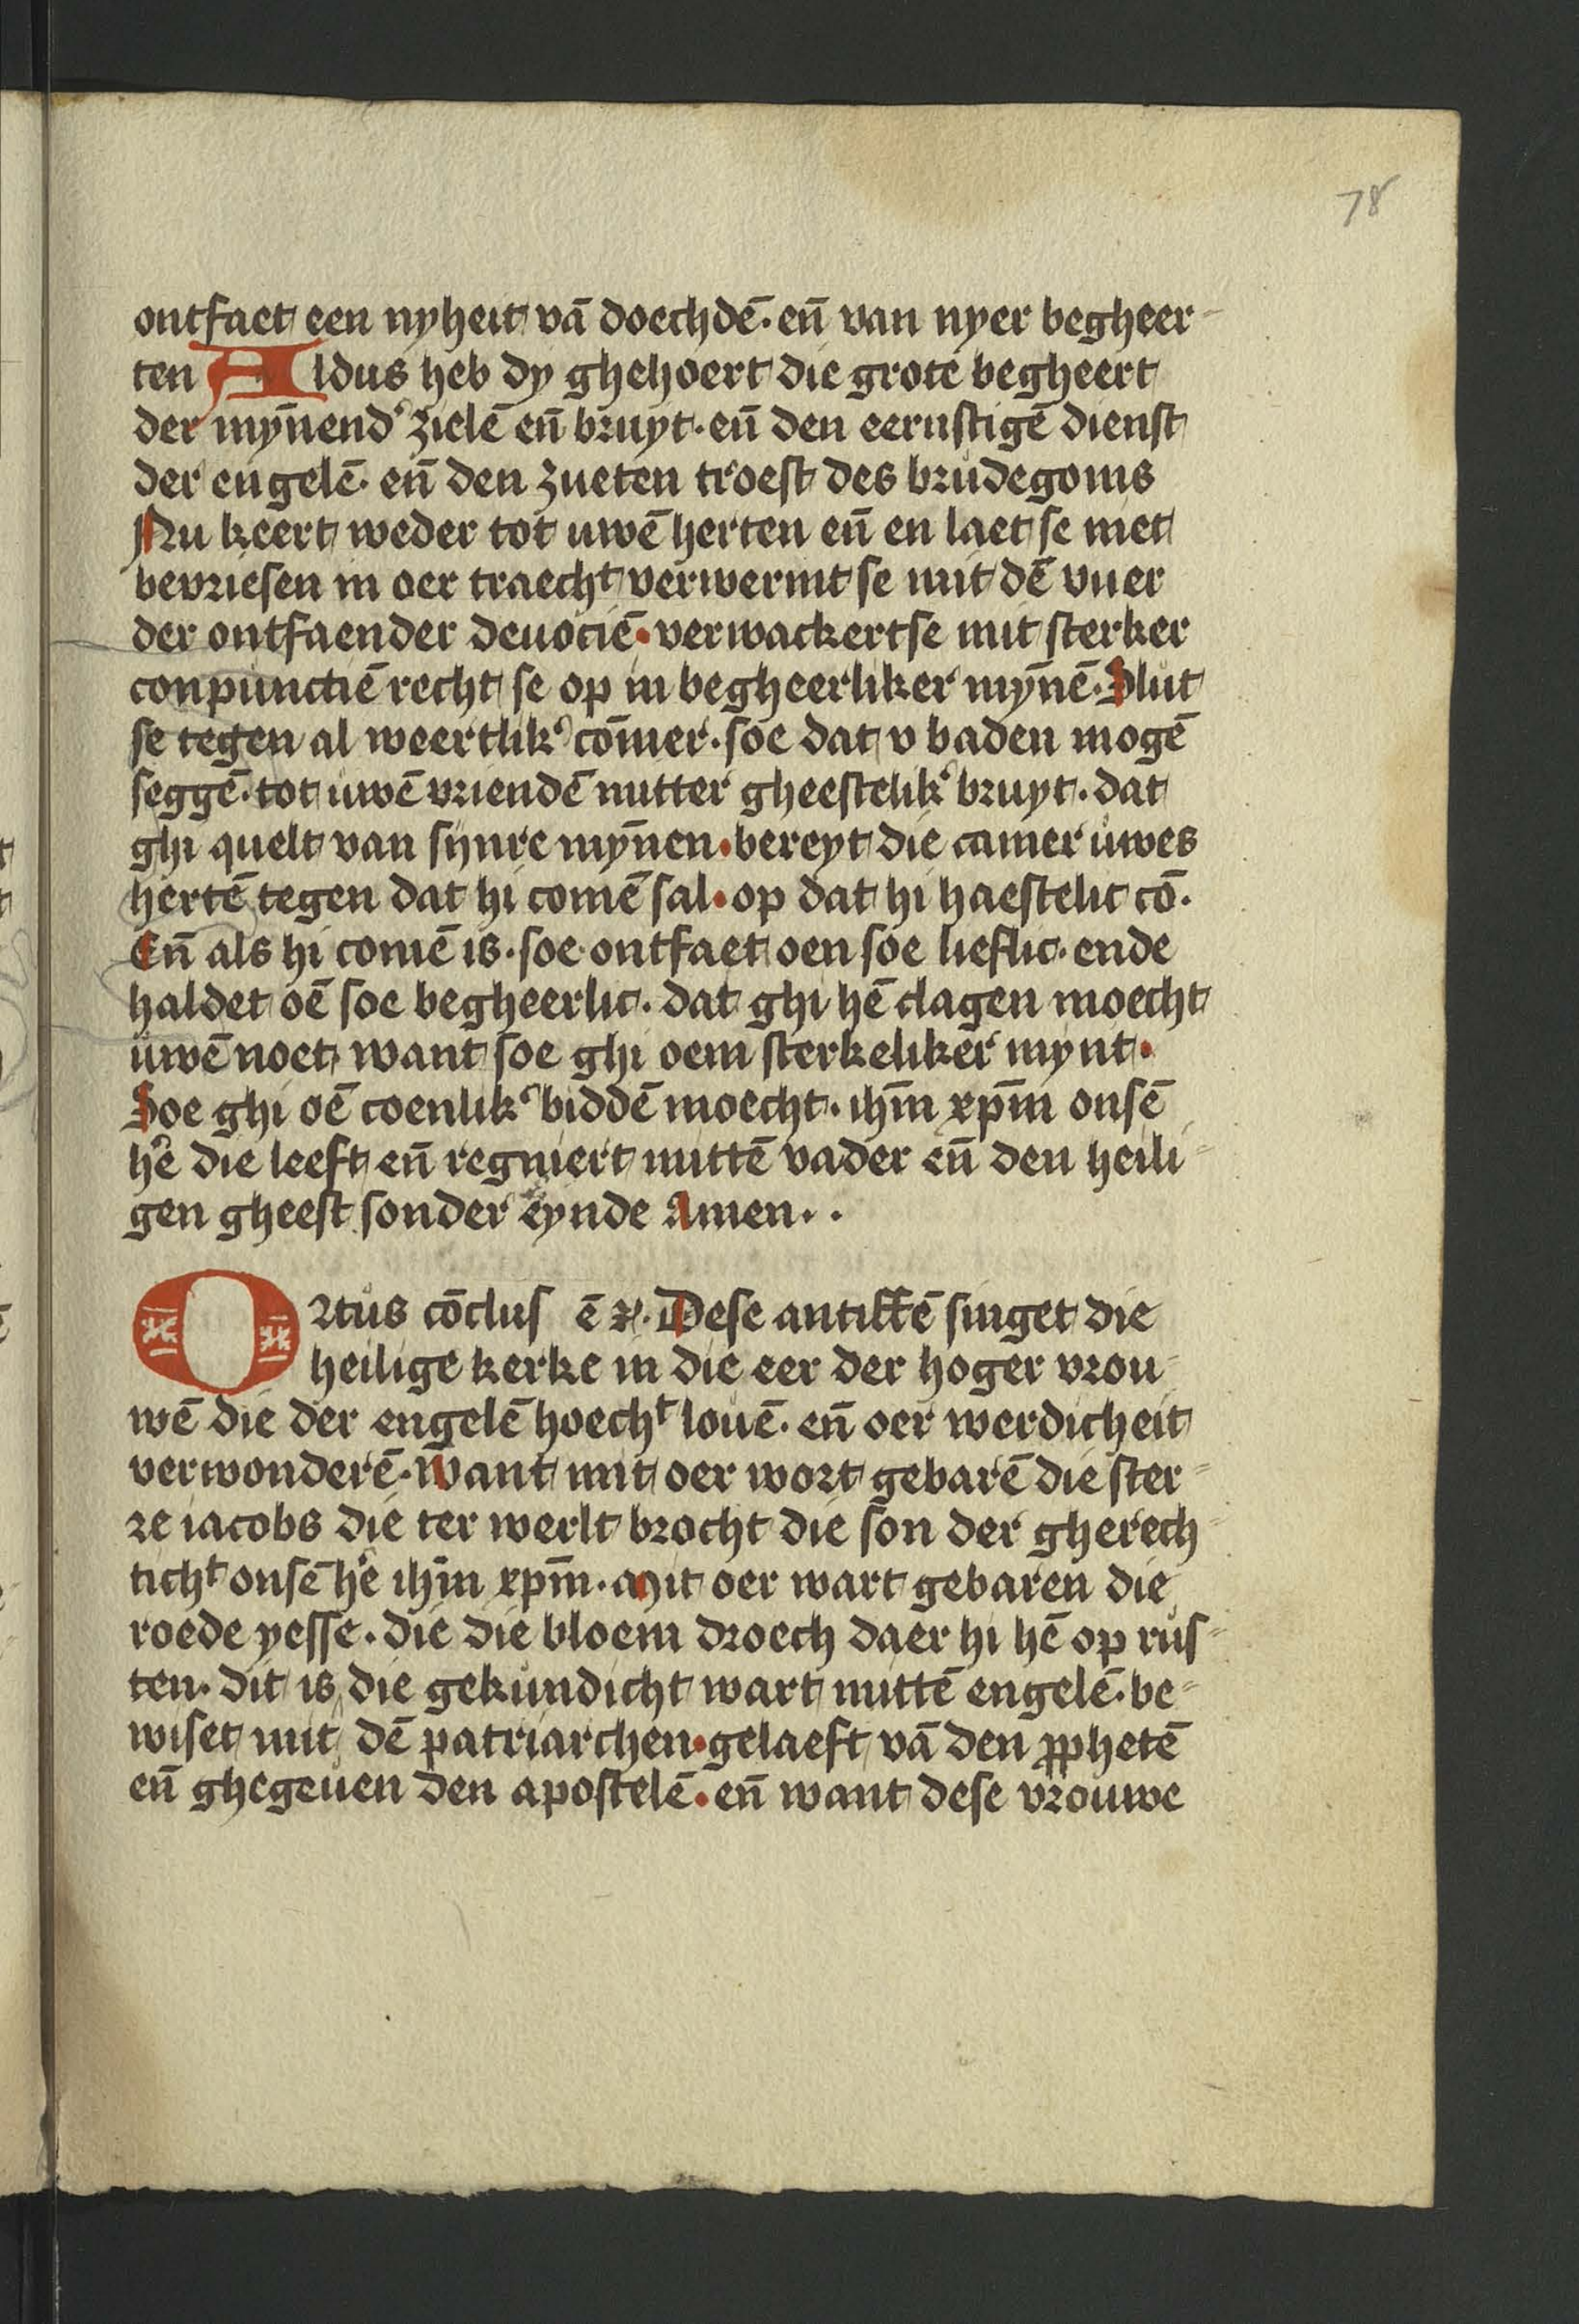 78
ontfaet een nyheit vā doechdē· en̄ van nyer begheer-
ten Aldus heb dy ghehoert die grote begheert
der myn̄end' zielē en̄ bruyt· en̄ den eernstigē dienst
der engelē· en̄ den zueten troest des brudegoms
Nu keert weder tot uwē herten en̄ en laet se niet
bevriesen in oer traechᵗ verwermt se mit dē vuer
der ontfaender deuociē· verwackertse mit sterker
conpunctiē recht se op in begheerliker myn̄ē· Slut
se tegen al weertlik' com̄er· soe dat v baden mogē
seggē· tot uwē vriendē mitter gheestelik' bruyt· dat
ghi quelt van synre myn̄en· bereyt die camer uwes
hertē tegen dat hi comē sal· op dat hi haestelic cō·
En̄ als hi comē is· soe ontfaet oen soe lieflic· ende
haldet oē soe begheerlic· dat ghi hē clagen moecht
uwē noet want soe ghi oem sterkeliker mynt·
Soe ghi oē coenlik' biddē moecht· ihm̄ xpm̄ onsē
h'ē die leeft en̄ regniert mittē vader en̄ den heili-
gen gheest sonder eynde Amen··
Ortus cōclus ē ꝛ· Dese antiffē singet die
heilige kerke in die eer der hoger vrou-
wē die der engelē hoechᵗ louē· en̄ oer werdicheit
verwonderē· Want mit oer wort gebarē die ster-
re iacobs die ter werlt brocht die son der gherech-
tichᵗ onsē h'ē ihm̄ xpm̄· Mit oer wart gebaren die
roede yesse· die die bloem droech daer hi hē op rus-
ten· dit is die gekundicht wart mittē engelē· be-
wiset mit dē patriarchen· gelaeft vā den ꝓphetē
en̄ ghegeuen den apostelē· en̄ want dese vrouwe